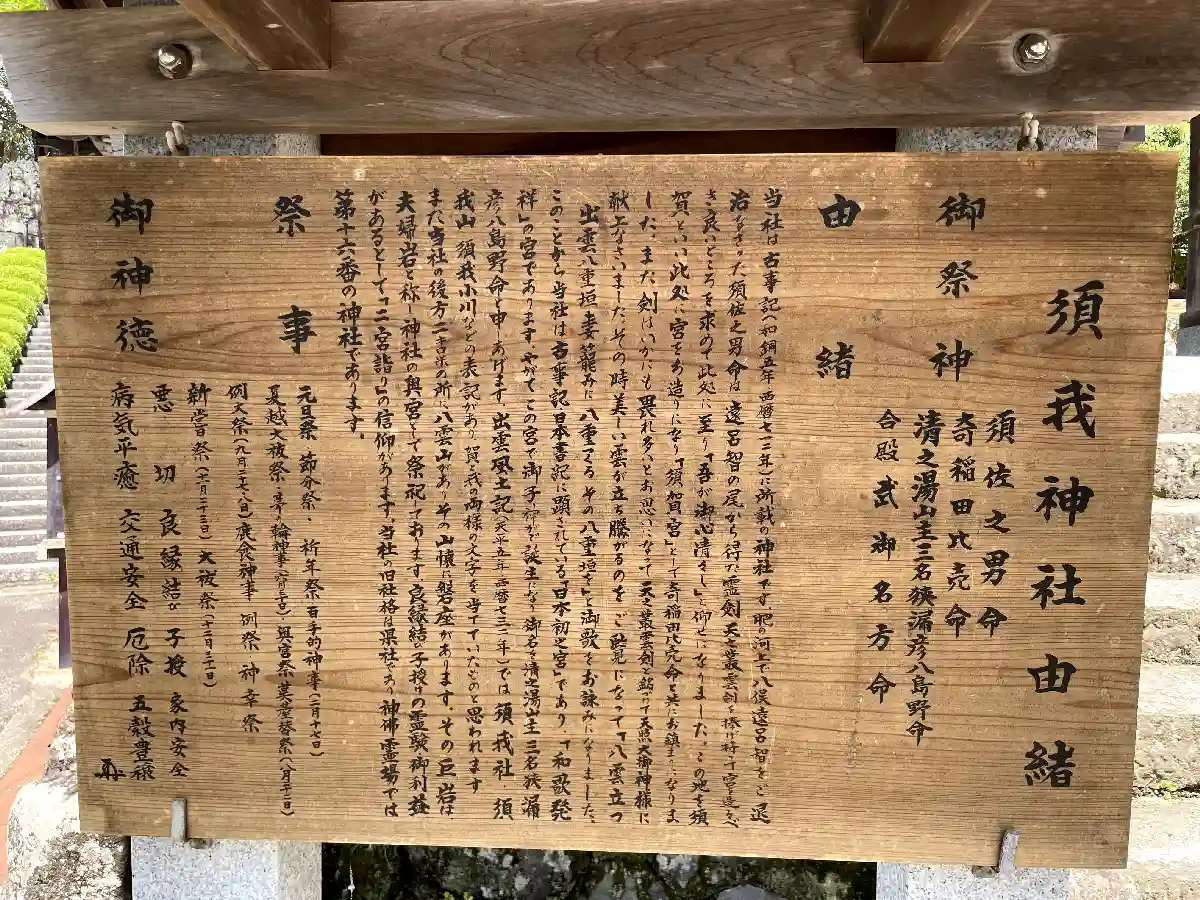 須我神社由緒
御祭神
須佐之男命
奇稲田比売命
清之湯山主三名狭漏彦八島野命
合殿 武御名方命
由緒
当社は古事記(和銅五年西暦七一三年)に所載の神社です。肥の河上で八俣遠呂智をご退
治なさった須佐之男命は、遠呂智の尾から得た霊剣天之叢雲剣を捧げ持ち宮造るべ
き良いところを求めて此処に至り「吾が御心清々し」と仰せになりました。この地を須
賀といい此処に宮をお造りになり「須賀宮」として奇稲田比売命と共にお鎮まりになりま
した。また、剣はいかにも畏れ多いとお思いになって天之叢雲剣と銘して天照大御神様に
献上なさいました。その時美しい雲が立ち騰がるのを、ご覧になって「八雲立つ
出雲八重垣妻籠みに 八重垣つくる その八重垣を」と御歌をお詠みになりました。
このことから当社は古事記日本書記に顕されている「日本初之宮」であり、「和歌発
祥」の宮であります。やがて、この宮で御子神様が誕生になり御名を清之湯山主三名狭漏
彦八島野命と申しあげます。出雲風土記(天平五年西暦七三二年)では須我社、須
我山、須我小川などの表記があり賀と我の両様の文字を当てていたものと思われます
また当社の後方二吉米の所に八雲山がありその山懐に磐座があります。その巨岩は
夫婦岩と称し神社の奥宮として祭祀しております。良縁結び子授けの霊験御利益
があるとして「二宮詣り」の信仰があります。当社の旧社格は県社であり神佛霊場では
第十六番の神社であります。
祭事
元旦祭、節分祭・祈年祭 百手的神事(二月十七日)
夏越大祓祭・奥宮祭
例大祭 鹿食神事 例祭 神幸祭
新嘗祭(十一月二十三日) 大祓祭(十二月三十一日)
御神徳
悪切 良縁結び 子授 家内安全
病気平癒 交通安全 厄除 五穀豊穣